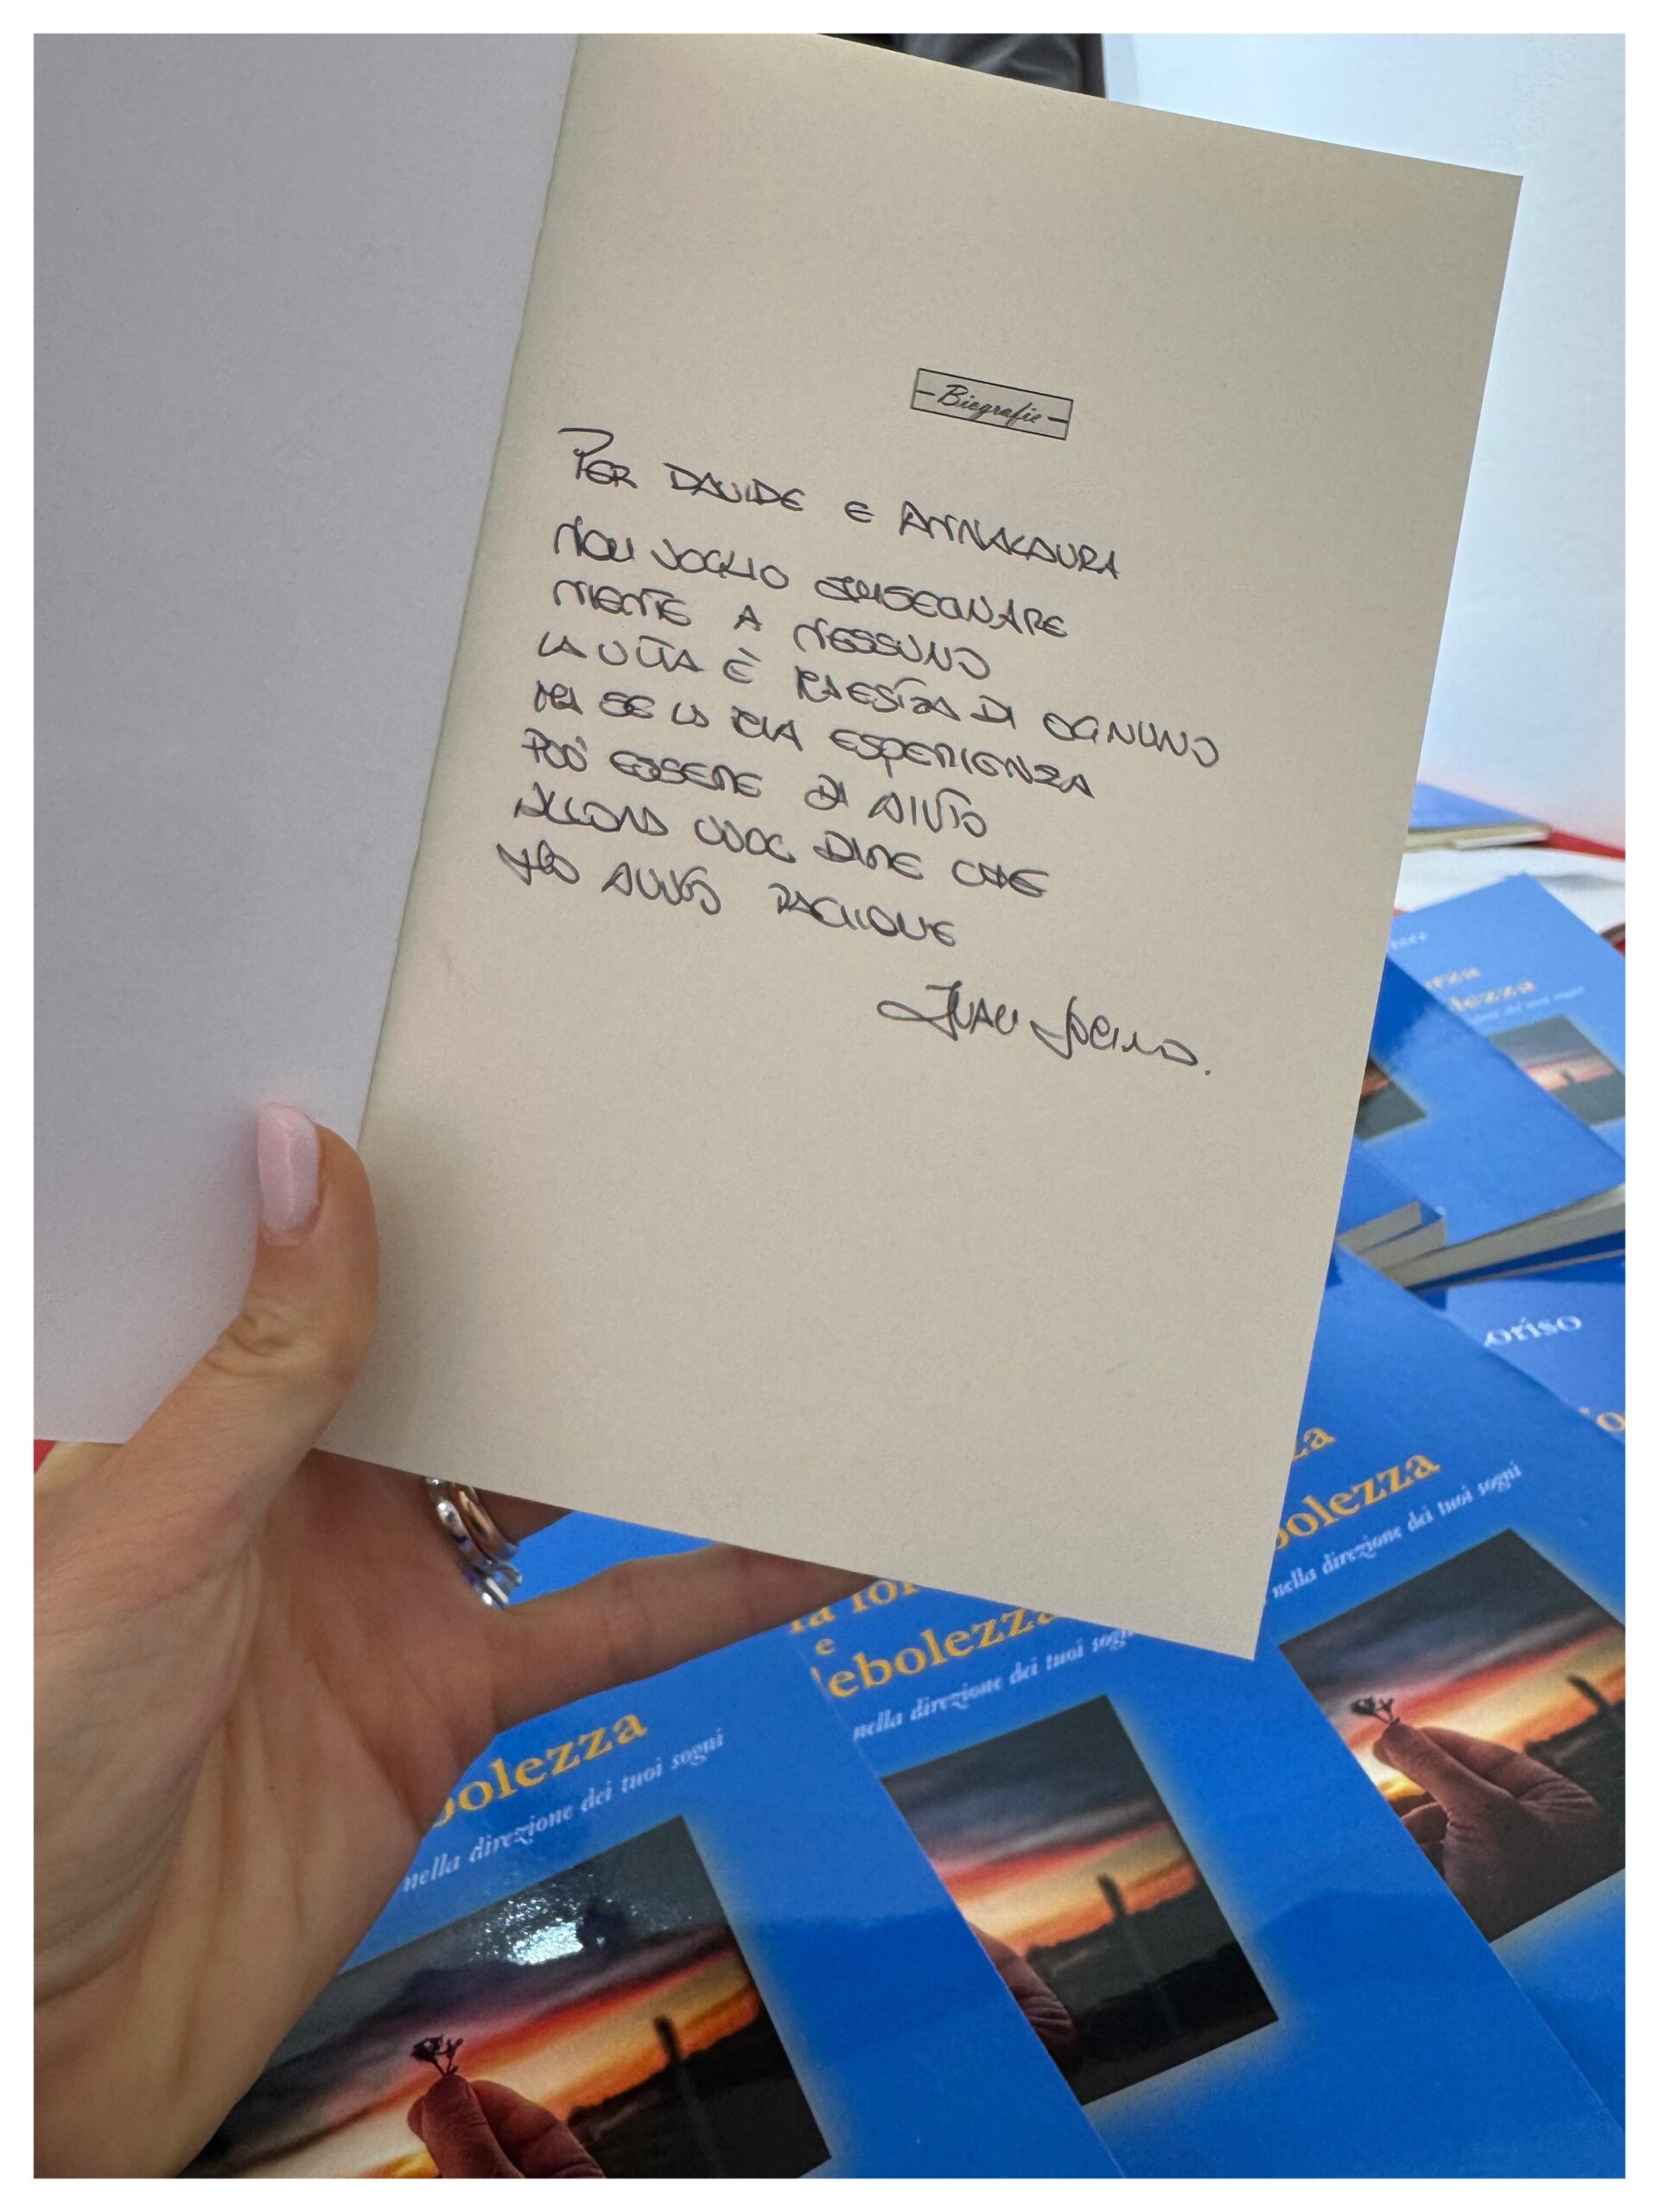 Biografie
PER DAVIDE E ANNALAURA
NON VOGLIO INSEGNARE
NIENTE A NESSUNO
LA VITA È MAESTRA DI OGNUNO
MA SE LA MIA ESPERIENZA
PUÒ ESSERE DI AIUTO
ALLORA VUOL DIRE CHE
HO AVUTO RAGIONE
oriso
za
bolezza
nella direzione dei tuoi sogni
la for
e
debolezza
nella direzione dei tuoi sogni
bolezza
nella direzione dei tuoi sogni